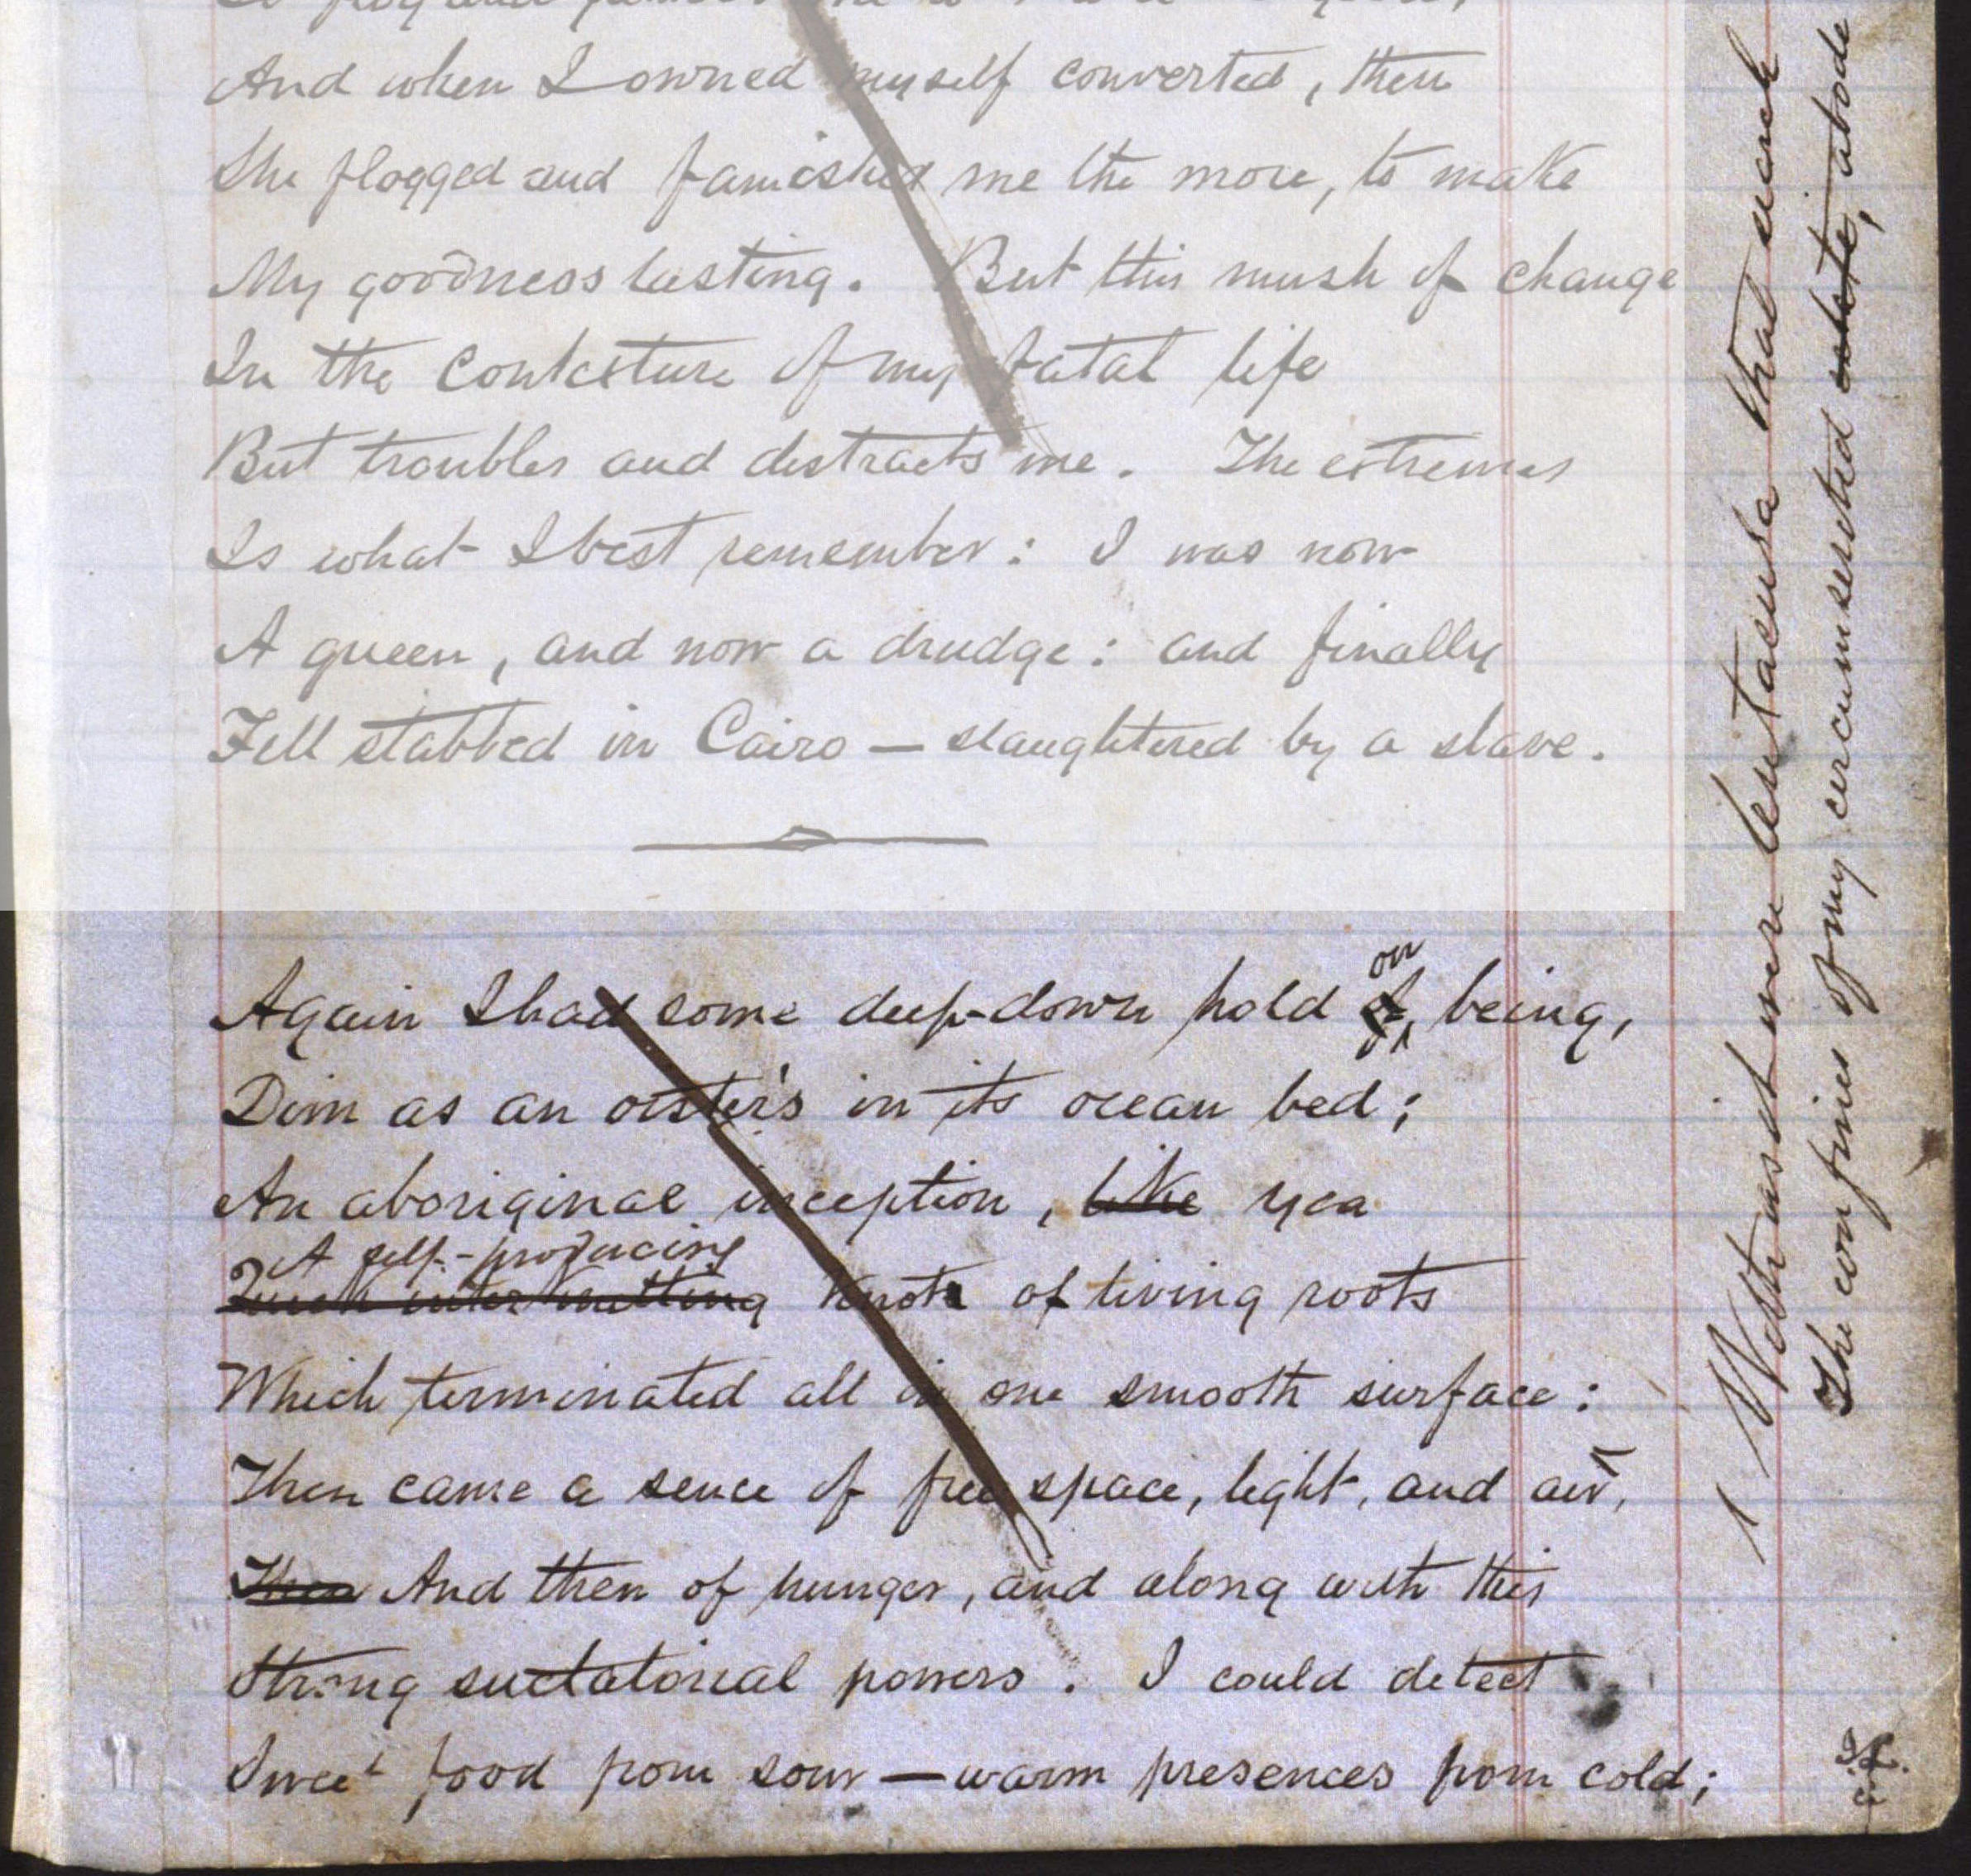 And when I owned myself converted, then
She flogged and famished me the more, to make
My goodness lasting. But this mush of change
In the contexture of my fatal life
But troubles and distracts me. The extremes
Is what I best remember: I was now
A queen, and now a drudge: and finally
Fell stabbed in Cairo — slaughtered by a slave.
Again I had some deep-down hold of on being,
Dim as an oister's in its ocean bed;
An aboriginal inception, like yea
A self-producing
inter knitting Knot of living roots
Which terminated all in one smooth surface:
Then came a sence of free space, light, and air,
Then And then of hunger, and along with this
Strong suctatorial powers. I could detect
Sweet food from sour — warm presences from cold;
Withal it were tentacula that
The confines of my circumscribed abode